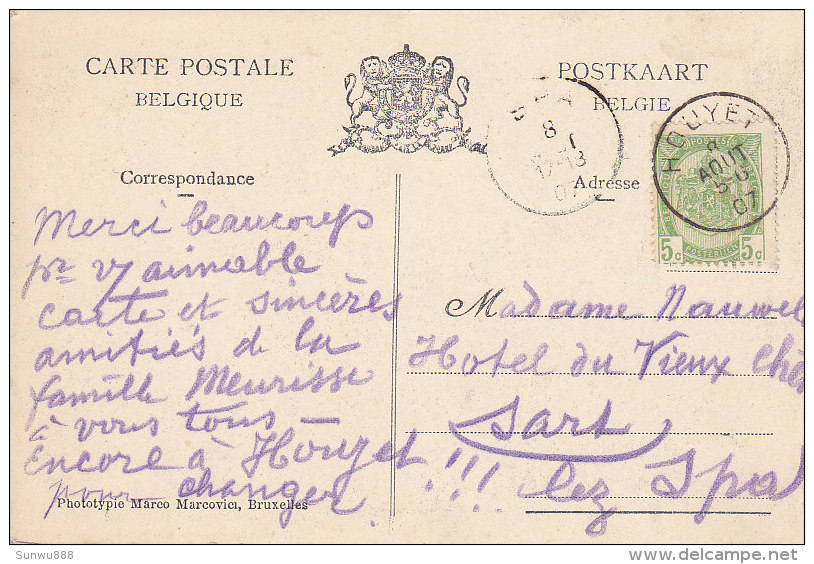 CARTE POSTALE
BELGIQUE
POSTKAART
BELGIE
Correspondance
Adresse
SPA
8
12-13
07
HOUYET
8
AOUT
07
5c 5c
Merci beaucoup
pr vj aimable
carte et sincères
amitiés de la
famille Meurisse
à vous tous —
Encore à Houyet
pour changer !!!
Madame Nauwel
Hotel du Vieux Chê
Sart
lez Spa
Phototypie Marco Marcovici, Bruxelles
Sunwu888
delcampe.net